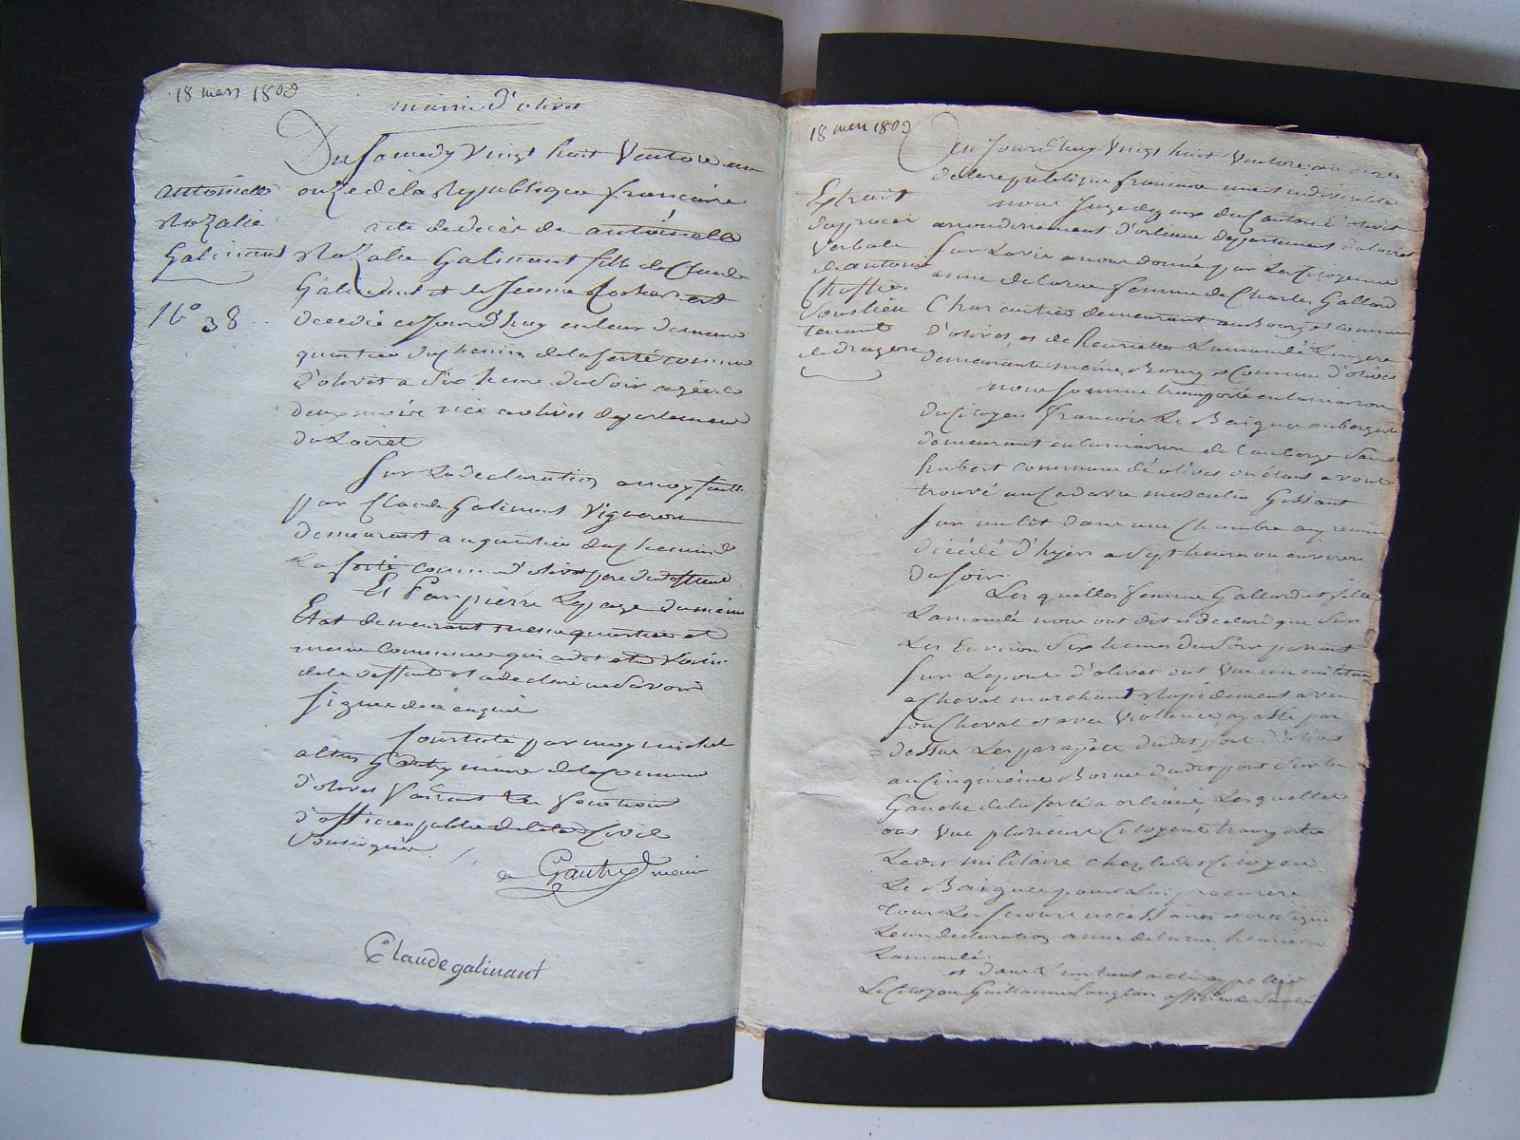 18 mars 1803
mairie d'olivet
Du Samedy vingt huit Ventose an
onze de la Republique francaise
antoinette
Rozalie
Galinant
N° 38
acte de decès de antoinette
Rozalie Galinant fille de Claude
Galinant et de Jeanne
decedée cejourd'huy en leur demeure
quartier du chemin de la ferté commune
d'olivet a Six heures du Soir agée de
deux mois departement
du Loiret
Sur la declaration a moy faitte
par Claude Galinant Vigneron
demeurant au quartier du chemin de
La ferté commune d'olivet pere de la deffunte
Et Par pierre Lepage du même
Etat demeurant meme quartier et
meme Commune qui a dit etre Voisin
de la deffunte et a declaré ne Savoir
Signer de ce enquis
Constaté par moy michel
Gautry maire de la Commune
d'olivet faisant les fonctions
d'officier public de l'etat Civil
Soussigné
Gautry maire
Claude galinant
18 mars 1803
Cejourd'huy vingt huit Ventose an onze
de la republique francaise une et indivisible
Extrait
du procès
Verbal
de antoine
Choffier
Souslieu
tenant
de dragons
nous Juge de paix du Canton d'olivet
arrondissement d'orleans departement du Loiret
Sur Lavis a nous donné par La Citoyenne
anne delorme femme de Charles Gallard
Charcutier demeurant au Bourg et commune
d'olivet, et de Henriette Lamoulé Lingere
demeurante même Bourg et Commune d'olivet
nous Somme transporté en la maison
du Citoyen francois Le Baigue aubergiste
demeurant en la maison de l'auberge Saint
hubert commune d'olivet ou étant avons
trouvé un Cadavre masculin Gissant
Sur un lit dans une Chambre
décédé d'hyer a Sept heures ou environ
du Soir.
Les quelles femme Gallard et fille
Lamoulé nous ont dit et declaré que Sur
Les Environ Six heures du Soir passant
Sur Le pont d'olivet ont vue un militaire
a Cheval marchant Rapidement avec
Son Cheval et avec Violence a passé par
dessus Les parapets dudit pont d'olivet
au Cinquième Borne dudit pont Sur la
Gauche de la ferté a orleans, Lesquelles
ont vue plusieurs Citoyens transporter
Ledit militaire chez ledit Citoyen
Le Baigue pour Lui procurer
tous Les Secours necessaires et ont signé
Leur declaration anne delorme, henriette
Lamoulé.
et dans L'instant
Le Citoyen Guillaume Langlois officier de Santé